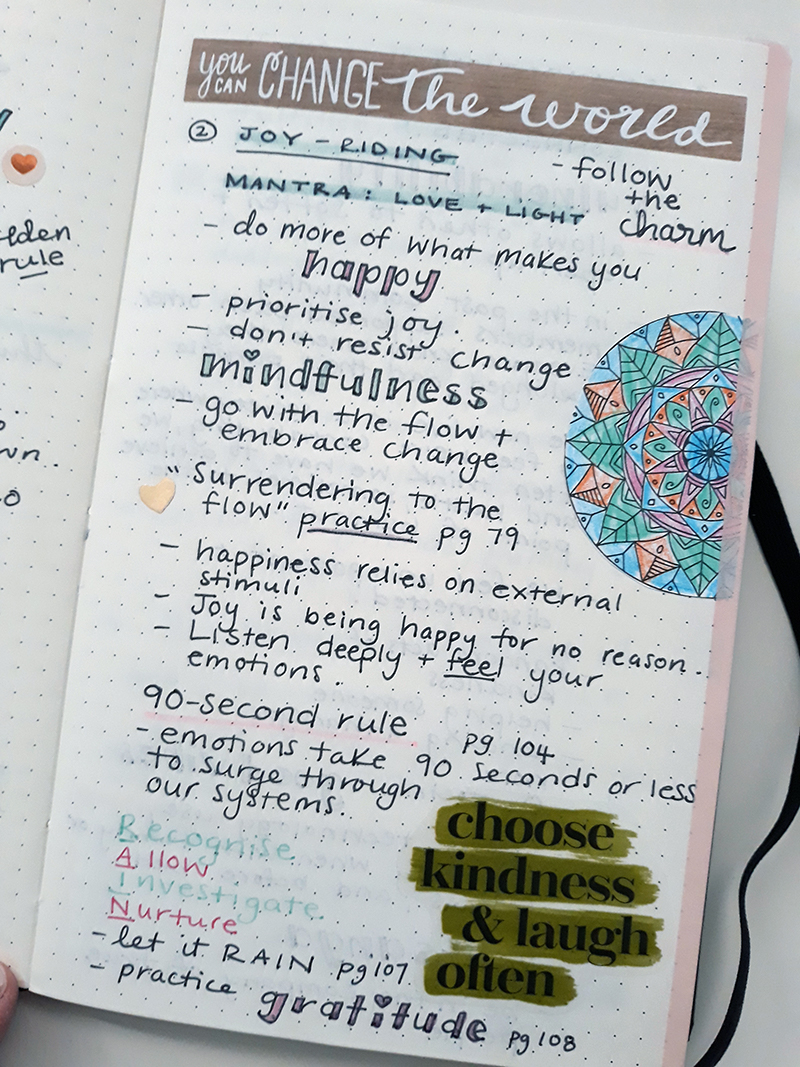 you CAN CHANGE the world
② JOY - RIDING
- follow
the
charm
MANTRA: LOVE + LIGHT
- do more of what makes you
happy
- prioritise joy.
- don't resist change
mindfulness
- go with the flow +
embrace change
"Surrendering to the
flow" practice pg 79
- happiness relies on external
stimuli
- Joy is being happy for no reason..
- Listen deeply + feel your
emotions.
90-second rule pg 104
- emotions take 90 seconds or less
to surge through
our systems.
Recognise
Allow
Investigate.
Nurture
- let it RAIN pg107
- practice gratitude pg 108
choose
kindness
& laugh
often
rule